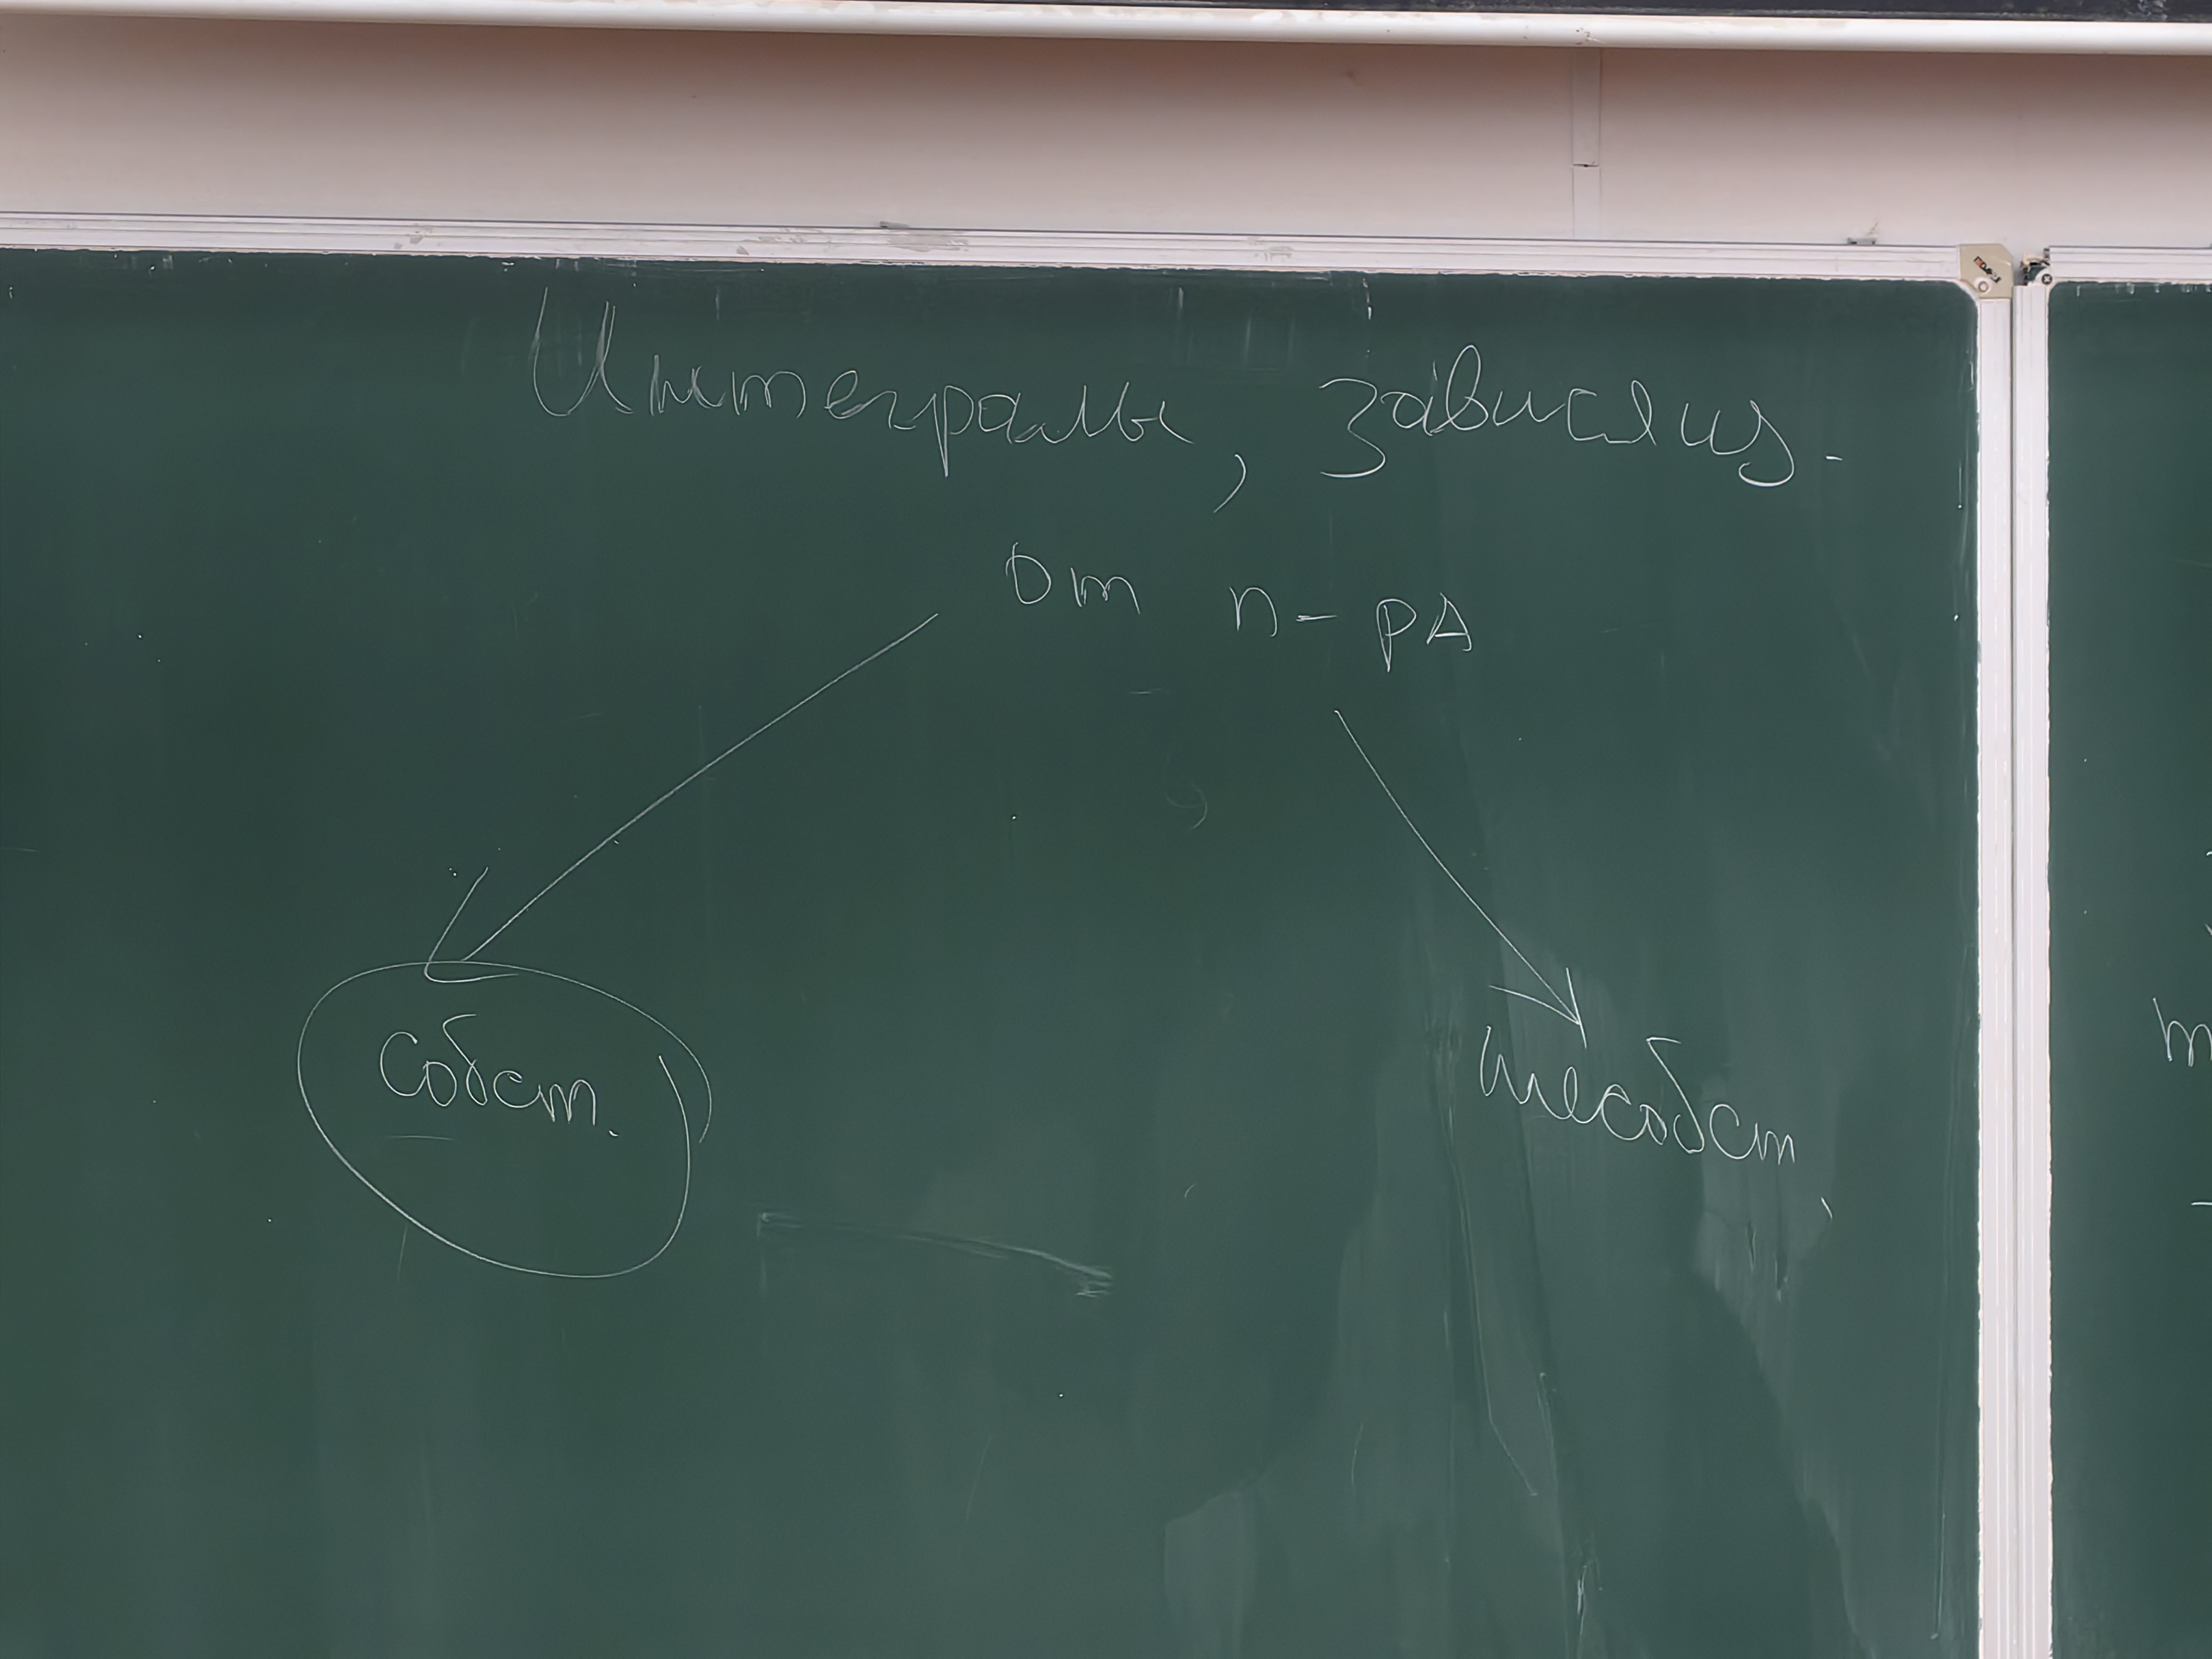 Интегралы, зависящ.
от п-рА
Собст.
несобст.